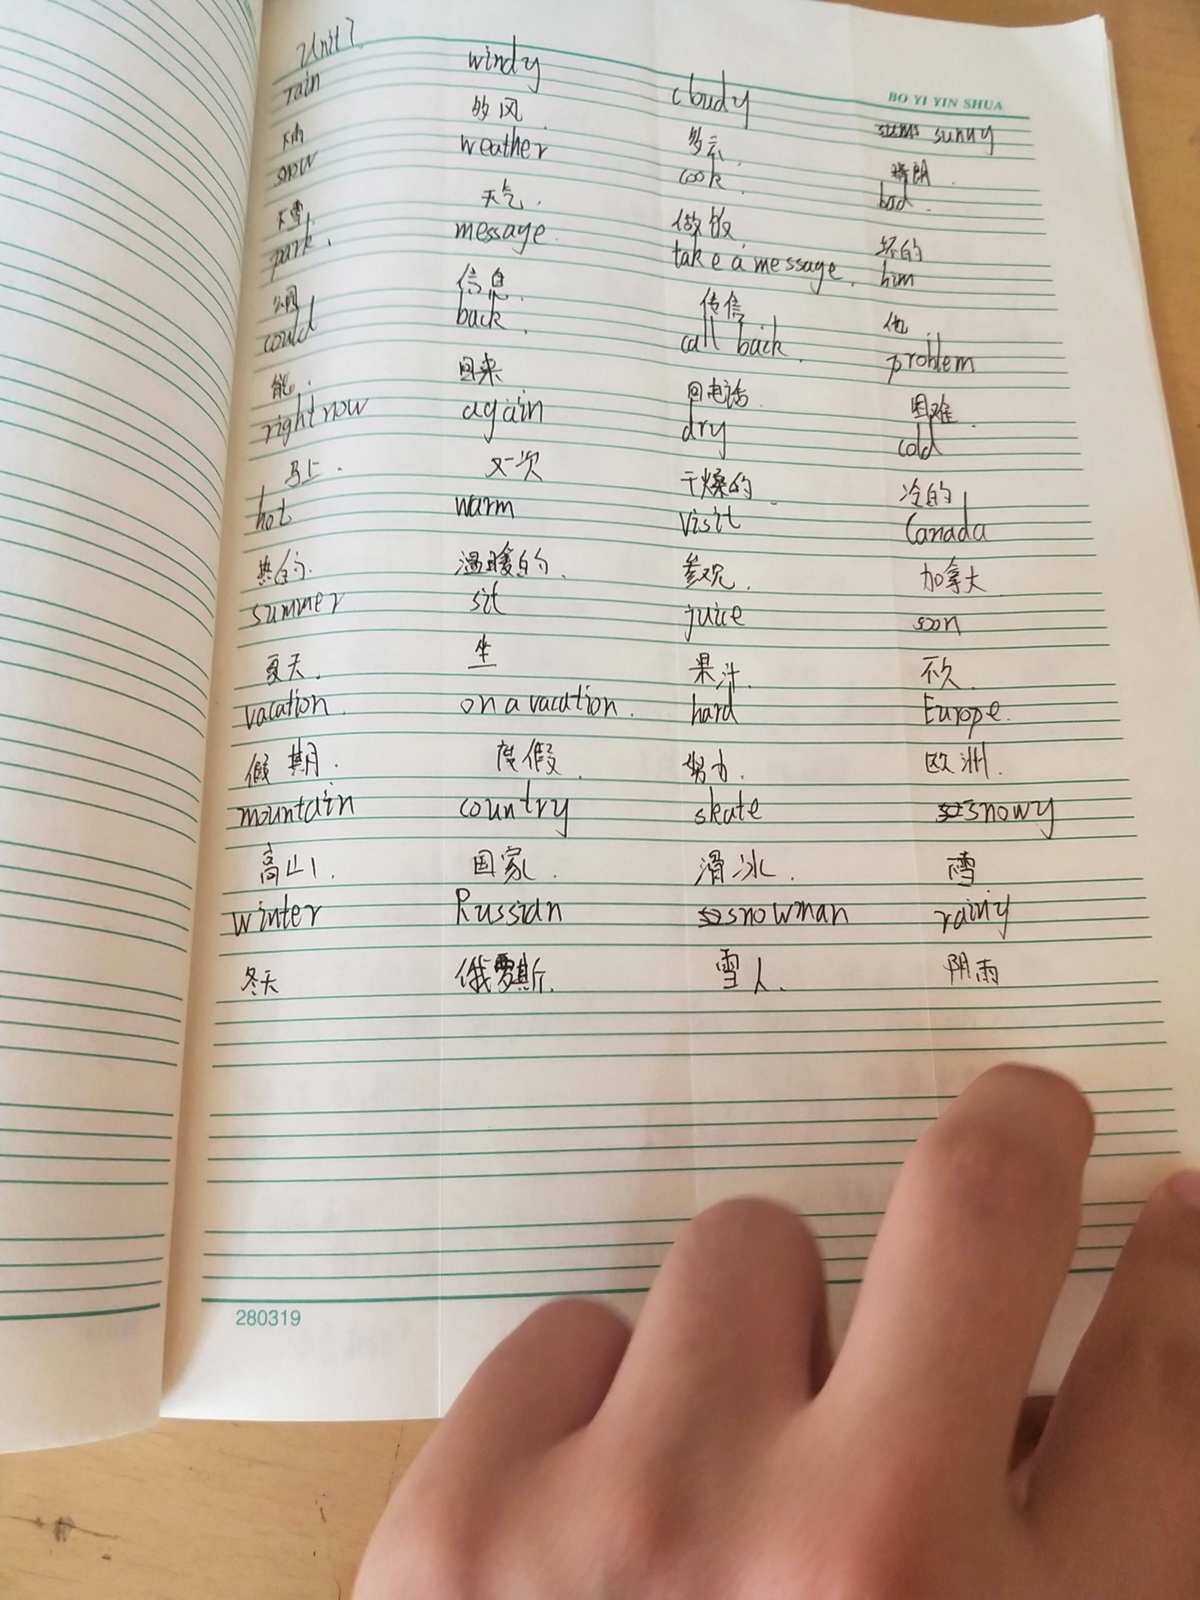 Unit 7.
BO YI YIN SHUA
rain windy cloudy sunny
下雨 的风. 多云. 晴朗.
snow weather cook. bad.
下雪. 天气. 做饭. 坏的
park. message. take a message. him
公园 信息. 传信 他.
could back. call back. problem
能. 回来 回电话. 困难.
right now again dry cold
马上. 又一次 干燥的. 冷的
hot warm visit Canada
热的. 温暖的. 参观. 加拿大
summer sit juice soon
夏天. 坐 果汁. 不久
vacation. on a vacation. hard Europe.
假期. 度假. 努力. 欧洲.
mountain country skate snowy
高山. 国家. 滑冰. 雪
winter Russian snowman rainy
冬天 俄罗斯. 雪人. 阴雨
280319